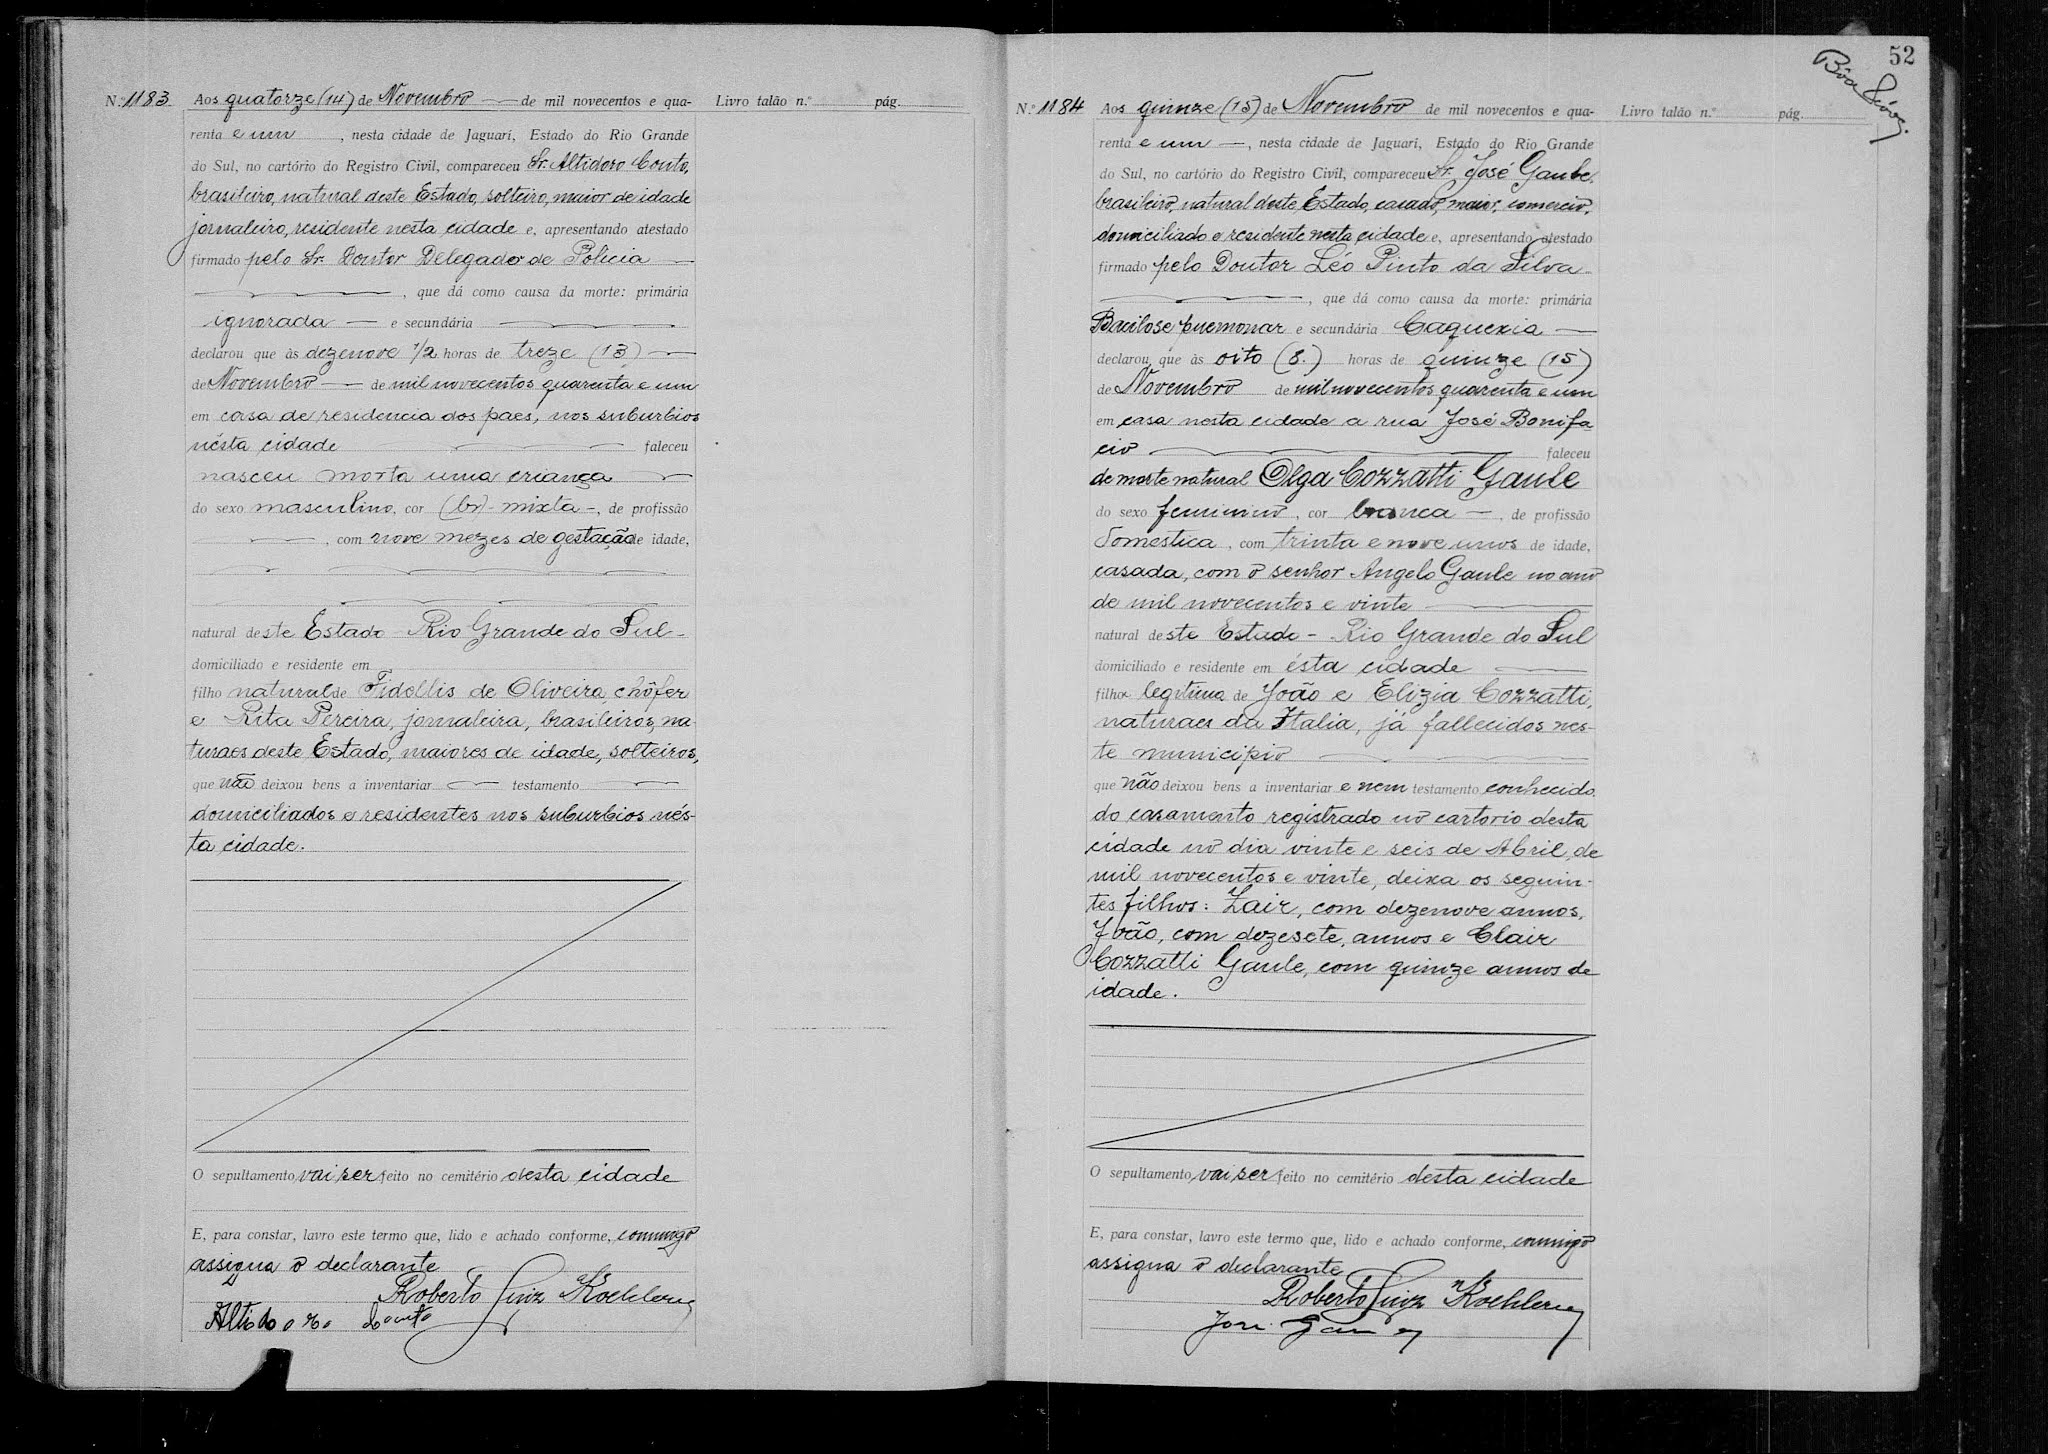 N.º 1183 Aos quatorze (14) de Novembro — de mil novecentos e qua- Livro talão n.º pág.
renta e um , nesta cidade de Jaguarí, Estado do Rio Grande
do Sul, no cartório do Registro Civil, compareceu Sr. Altidoro Couto,
brasileiro, natural deste Estado, solteiro, maior de idade
jornaleiro, residente nesta cidade e, apresentando atestado
firmado pelo Sr. Doutor Delegado de Policia —
, que dá como causa da morte: primária
ignorada — e secundária
declarou que às dezenove 1/2 horas de treze (13) —
de Novembro — de mil novecentos quarenta e um
em casa de residencia dos paes, nos suburbios
nésta cidade faleceu
nasceu morta uma criança
do sexo masculino, cor (br) - mixta -, de profissão
, com nove mezes de gestação de idade,
natural deste Estado - Rio Grande do Sul -
domiciliado e residente em
filho natural de Fidellis de Oliveira, chôfer
e Rita Pereira, jornaleira, brasileiros, na-
turaes deste Estado, maiores de idade, solteiros,
que não deixou bens a inventariar — testamento —
domiciliados e residentes nos suburbios nés-
ta cidade.
O sepultamento vai ser feito no cemitério desta cidade
E, para constar, lavro este termo que, lido e achado conforme, commigo
assigna o declarante
Roberto Luiz Koehler
Altidoro Couto
52
N.º 1184 Aos quinze (15) de Novembro de mil novecentos e qua- Livro talão n.º pág.
renta e um —, nesta cidade de Jaguarí, Estado do Rio Grande
do Sul, no cartório do Registro Civil, compareceu Sr. José Gaule,
brasileiro, natural deste Estado, casado, maior, comercio,
domiciliado e residente nesta cidade e, apresentando atestado
firmado pelo Doutor Léo Pinto da Silva
, que dá como causa da morte: primária
Bacilose puemonar e secundária Caquexia —
declarou que às oito (8.) horas de quinze (15)
de Novembro de mil novecentos quarenta e um
em casa nesta cidade a rua José Bonifa-
cio faleceu
de morte natural Olga Cozzatti Gaule
do sexo feminino, cor branca —, de profissão
domestica, com trinta e nove annos de idade,
casada, com o senhor Angelo Gaule no ano
de mil novecentos e vinte
natural deste Estado - Rio Grande do Sul
domiciliado e residente em ésta cidade
filha legitima de João e Elizia Cozzatti,
naturaes da Italia, já fallecidos nes-
te municipio
que não deixou bens a inventariar e nem testamento conhecido.
do casamento registrado no cartorio desta
cidade no dia vinte e seis de Abril, de
mil novecentos e vinte, deixa os seguin-
tes filhos: Zair, com dezenove annos,
João, com dezesete, annos e Clair
Cozzatti Gaule, com quinze annos de
idade.
O sepultamento vai ser feito no cemitério desta cidade
E, para constar, lavro este termo que, lido e achado conforme, commigo
assigna o declarante
Roberto Luiz Koehler